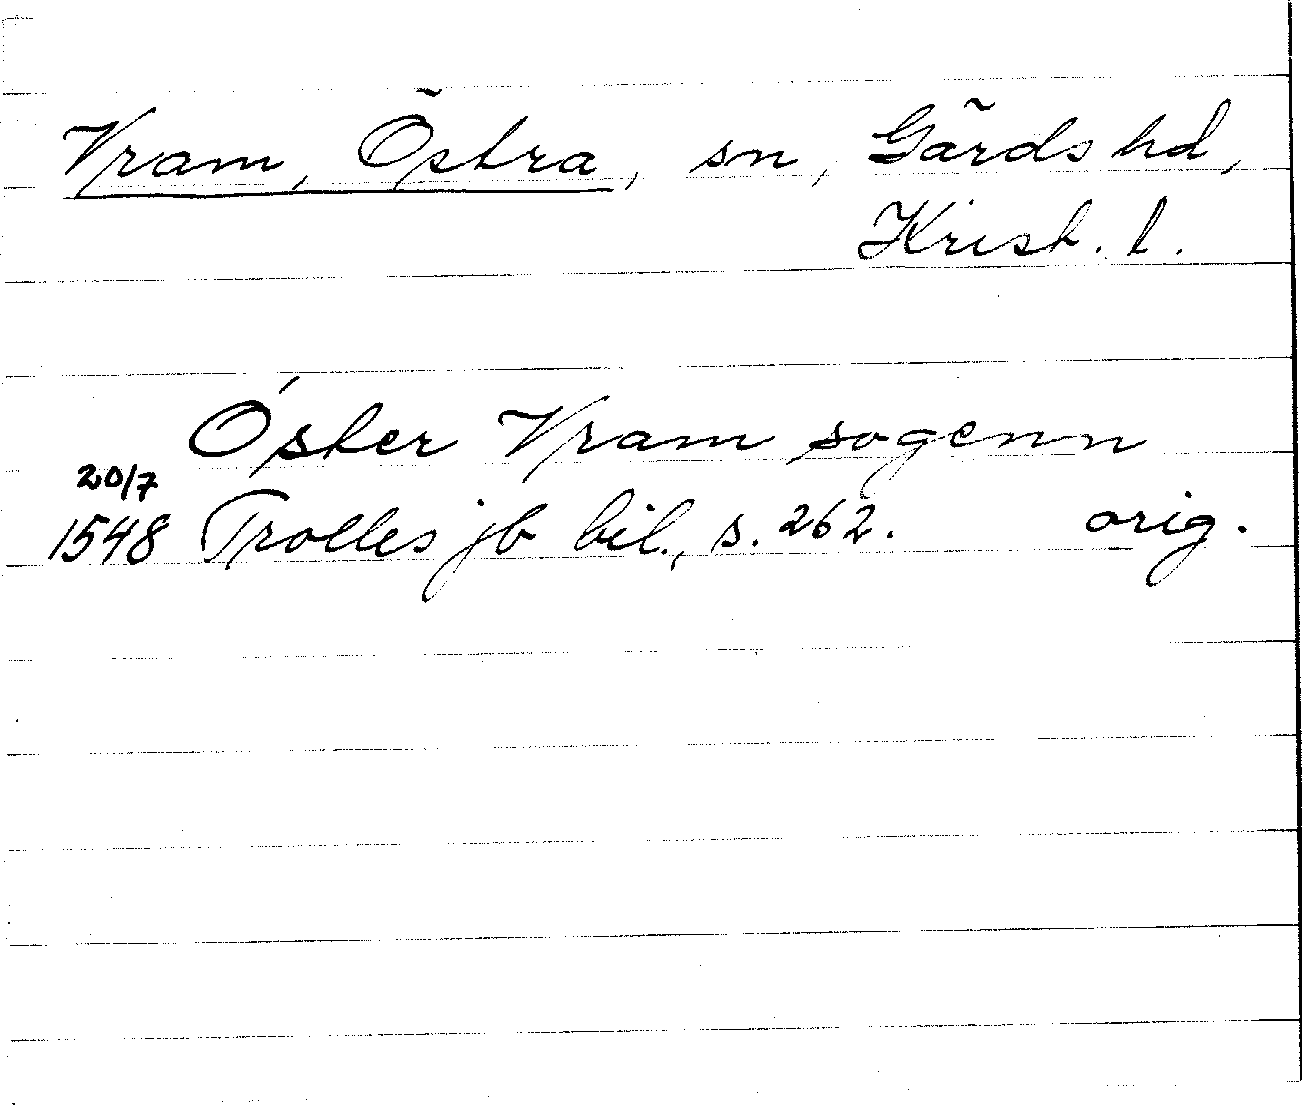 Vram, Östra, sn, Gärds hd,
Krist. l.
Óster Vram sogenn
20/7
1548 Trolles jb bil., s. 262. orig.